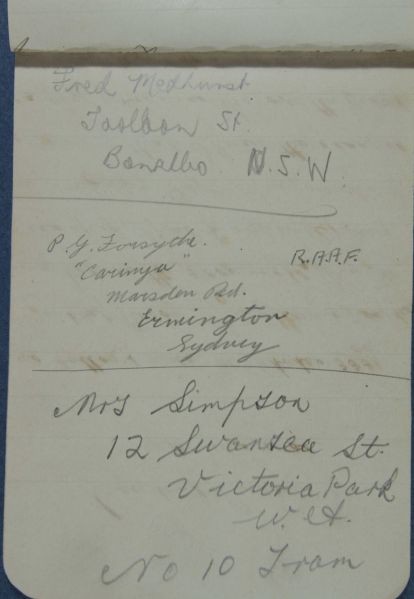 Fred Medhurst
Toolbon St.
Bonalbo N.S.W.
P. G. Forsythe.
R.A.A.F.
"Carinya"
Marsden Rd.
Ermington
Sydney
Mrs Simpson
12 Swansea St.
Victoria Park
W.A.
No 10 Tram